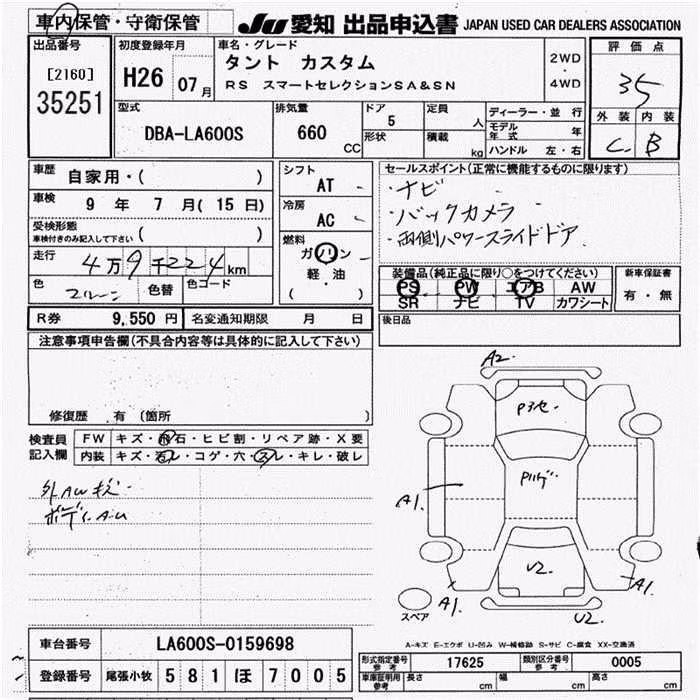 車内保管・守衛保管
JU 愛知 出品申込書 JAPAN USED CAR DEALERS ASSOCIATION
出品番号 初度登録年月 車名・グレード 評価点
[2160] H26 07月 タント カスタム 2WD・4WD 35
35251 RS スマートセレクションSA&SN
型式 排気量 ドア 定員 ディーラー・並 行 外装 内装
DBA-LA600S 660 CC 5 人 モデル年式 年 C B
形状 積載 kg ハンドル 左・右
車歴 自家用・( ) シフト AT セールスポイント(正常に機能するものに限ります)
車検 9 年 7 月( 15 日) ・ナビ
受検形態 車検付きのみ記入して下さい ( ) 冷房 AC ・バックカメラ
走行 4万9千224km 燃料 ガソリン ・両側パワースライドドア
軽・油
( )
色 色替 色コード
装備品(純正品に限り○をつけてください) 新車保証書
PS PW エアB AW 有・無
SR ナビ TV カワシート
R券 9,550 円 名変通知期限 月 日 後日品
注意事項申告欄(不具合内容等は具体的に記入して下さい)
修復歴 有 (箇所 )
検査員記入欄 FW キズ・飛石・ヒビ割・リペア跡・X要
内装 キズ・汚レ・コゲ・穴・スレ・キレ・破レ
外AWキズ
ボディA.U
A2
Pスセ
Pハゲ
A1
U2
A1
A1
U2
スペア
A-キズ E-エクボ U-凹み W-補修跡 S-サビ C-腐食 XX-交換済
車台番号 LA600S-0159698
登録番号 尾張小牧 581 ほ 7005
形式指定番号 参考 17625 類別区分番号 参考 0005
車庫証明用 参考 長さ cm 幅 cm 高さ cm